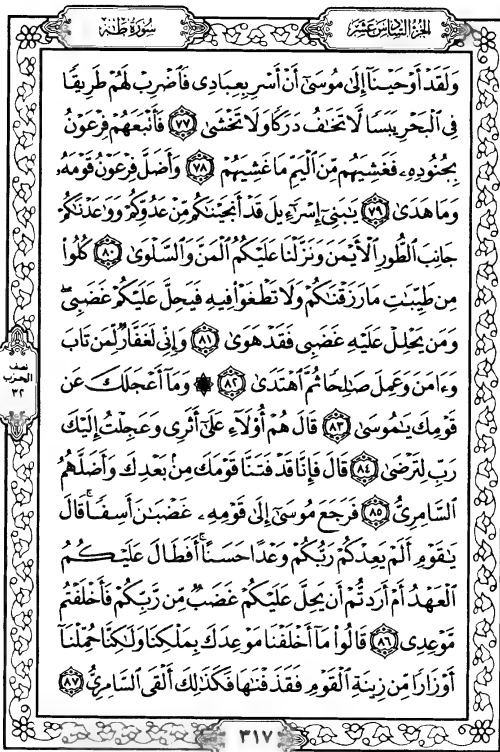 الجزء السادس عشر
سورة طه
وَلَقَدْ أَوْحَيْنَآ إِلَىٰ مُوسَىٰٓ أَنْ أَسْرِ بِعِبَادِى فَٱضْرِبْ لَهُمْ طَرِيقًا
فِى ٱلْبَحْرِ يَبَسًا لَّا تَخَٰفُ دَرَكًا وَلَا تَخْشَىٰ ٧٧ فَأَتْبَعَهُمْ فِرْعَوْنُ
بِجُنُودِهِۦ فَغَشِيَهُم مِّنَ ٱلْيَمِّ مَا غَشِيَهُمْ ٧٨ وَأَضَلَّ فِرْعَوْنُ قَوْمَهُۥ
وَمَا هَدَىٰ ٧٩ يَٰبَنِىٓ إِسْرَٰٓءِيلَ قَدْ أَنجَيْنَٰكُم مِّنْ عَدُوِّكُمْ وَوَٰعَدْنَٰكُمْ
جَانِبَ ٱلطُّورِ ٱلْأَيْمَنَ وَنَزَّلْنَا عَلَيْكُمُ ٱلْمَنَّ وَٱلسَّلْوَىٰ ٨٠ كُلُوا۟
مِن طَيِّبَٰتِ مَا رَزَقْنَٰكُمْ وَلَا تَطْغَوْا۟ فِيهِ فَيَحِلَّ عَلَيْكُمْ غَضَبِى ۖ
وَمَن يَحْلِلْ عَلَيْهِ غَضَبِى فَقَدْ هَوَىٰ ٨١ وَإِنِّى لَغَفَّارٌ لِّمَن تَابَ
وَءَامَنَ وَعَمِلَ صَٰلِحًا ثُمَّ ٱهْتَدَىٰ ٨٢ ۞ وَمَآ أَعْجَلَكَ عَن
نصف
الحزب
٣٢
قَوْمِكَ يَٰمُوسَىٰ ٨٣ قَالَ هُمْ أُو۟لَآءِ عَلَىٰٓ أَثَرِى وَعَجِلْتُ إِلَيْكَ
رَبِّ لِتَرْضَىٰ ٨٤ قَالَ فَإِنَّا قَدْ فَتَنَّا قَوْمَكَ مِنۢ بَعْدِكَ وَأَضَلَّهُمُ
ٱلسَّامِرِىُّ ٨٥ فَرَجَعَ مُوسَىٰٓ إِلَىٰ قَوْمِهِۦ غَضْبَٰنَ أَسِفًا ۚ قَالَ
يَٰقَوْمِ أَلَمْ يَعِدْكُمْ رَبُّكُمْ وَعْدًا حَسَنًا ۚ أَفَطَالَ عَلَيْكُمُ
ٱلْعَهْدُ أَمْ أَرَدتُّمْ أَن يَحِلَّ عَلَيْكُمْ غَضَبٌ مِّن رَّبِّكُمْ فَأَخْلَفْتُم
مَّوْعِدِى ٨٦ قَالُوا۟ مَآ أَخْلَفْنَا مَوْعِدَكَ بِمَلْكِنَا وَلَٰكِنَّا حُمِّلْنَآ
أَوْزَارًا مِّن زِينَةِ ٱلْقَوْمِ فَقَذَفْنَٰهَا فَكَذَٰلِكَ أَلْقَى ٱلسَّامِرِىُّ ٨٧
٣١٧